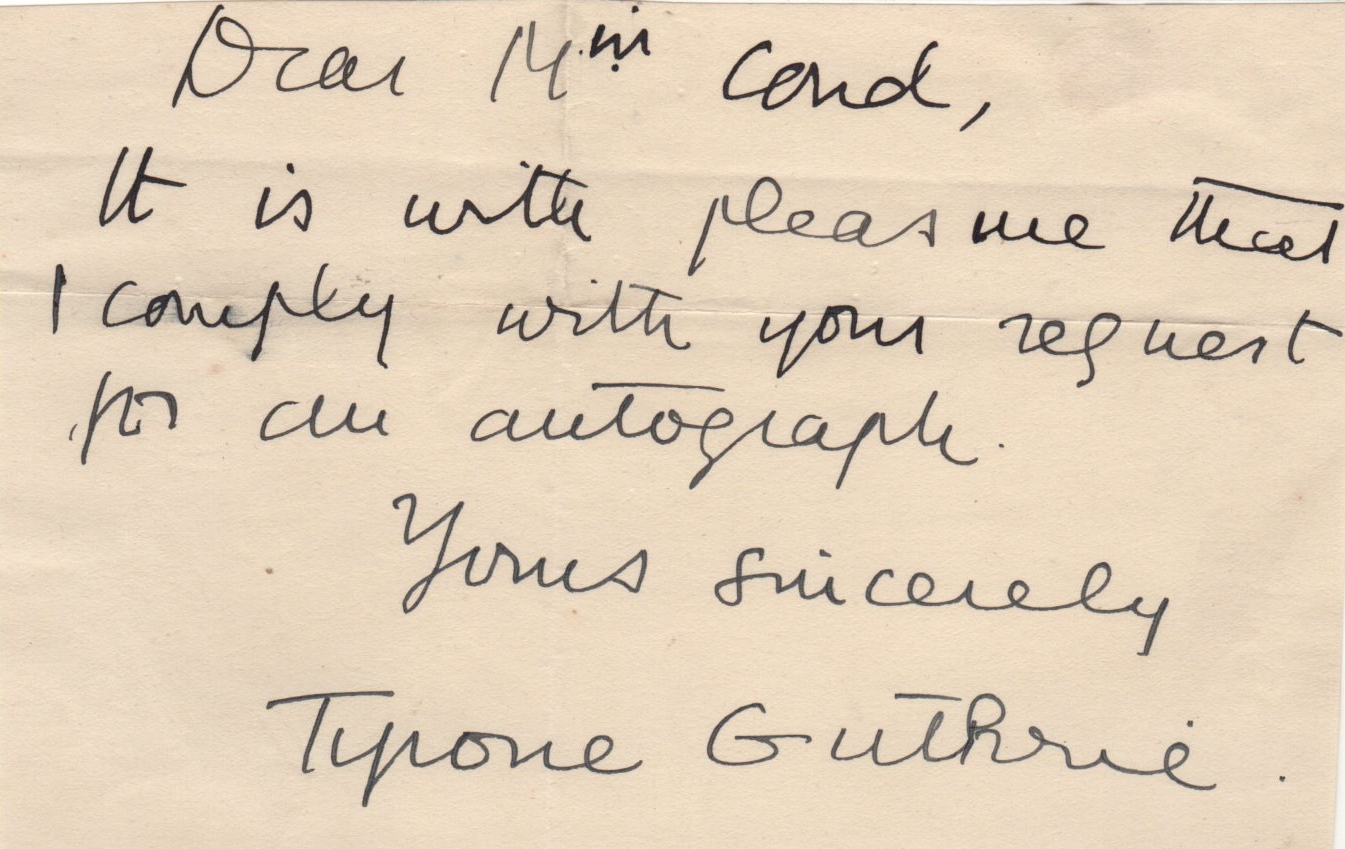 Dear Miss Cond,
It is with pleasure that
I comply with your request
for an autograph.
Yours sincerely
Tyrone Guthrie.